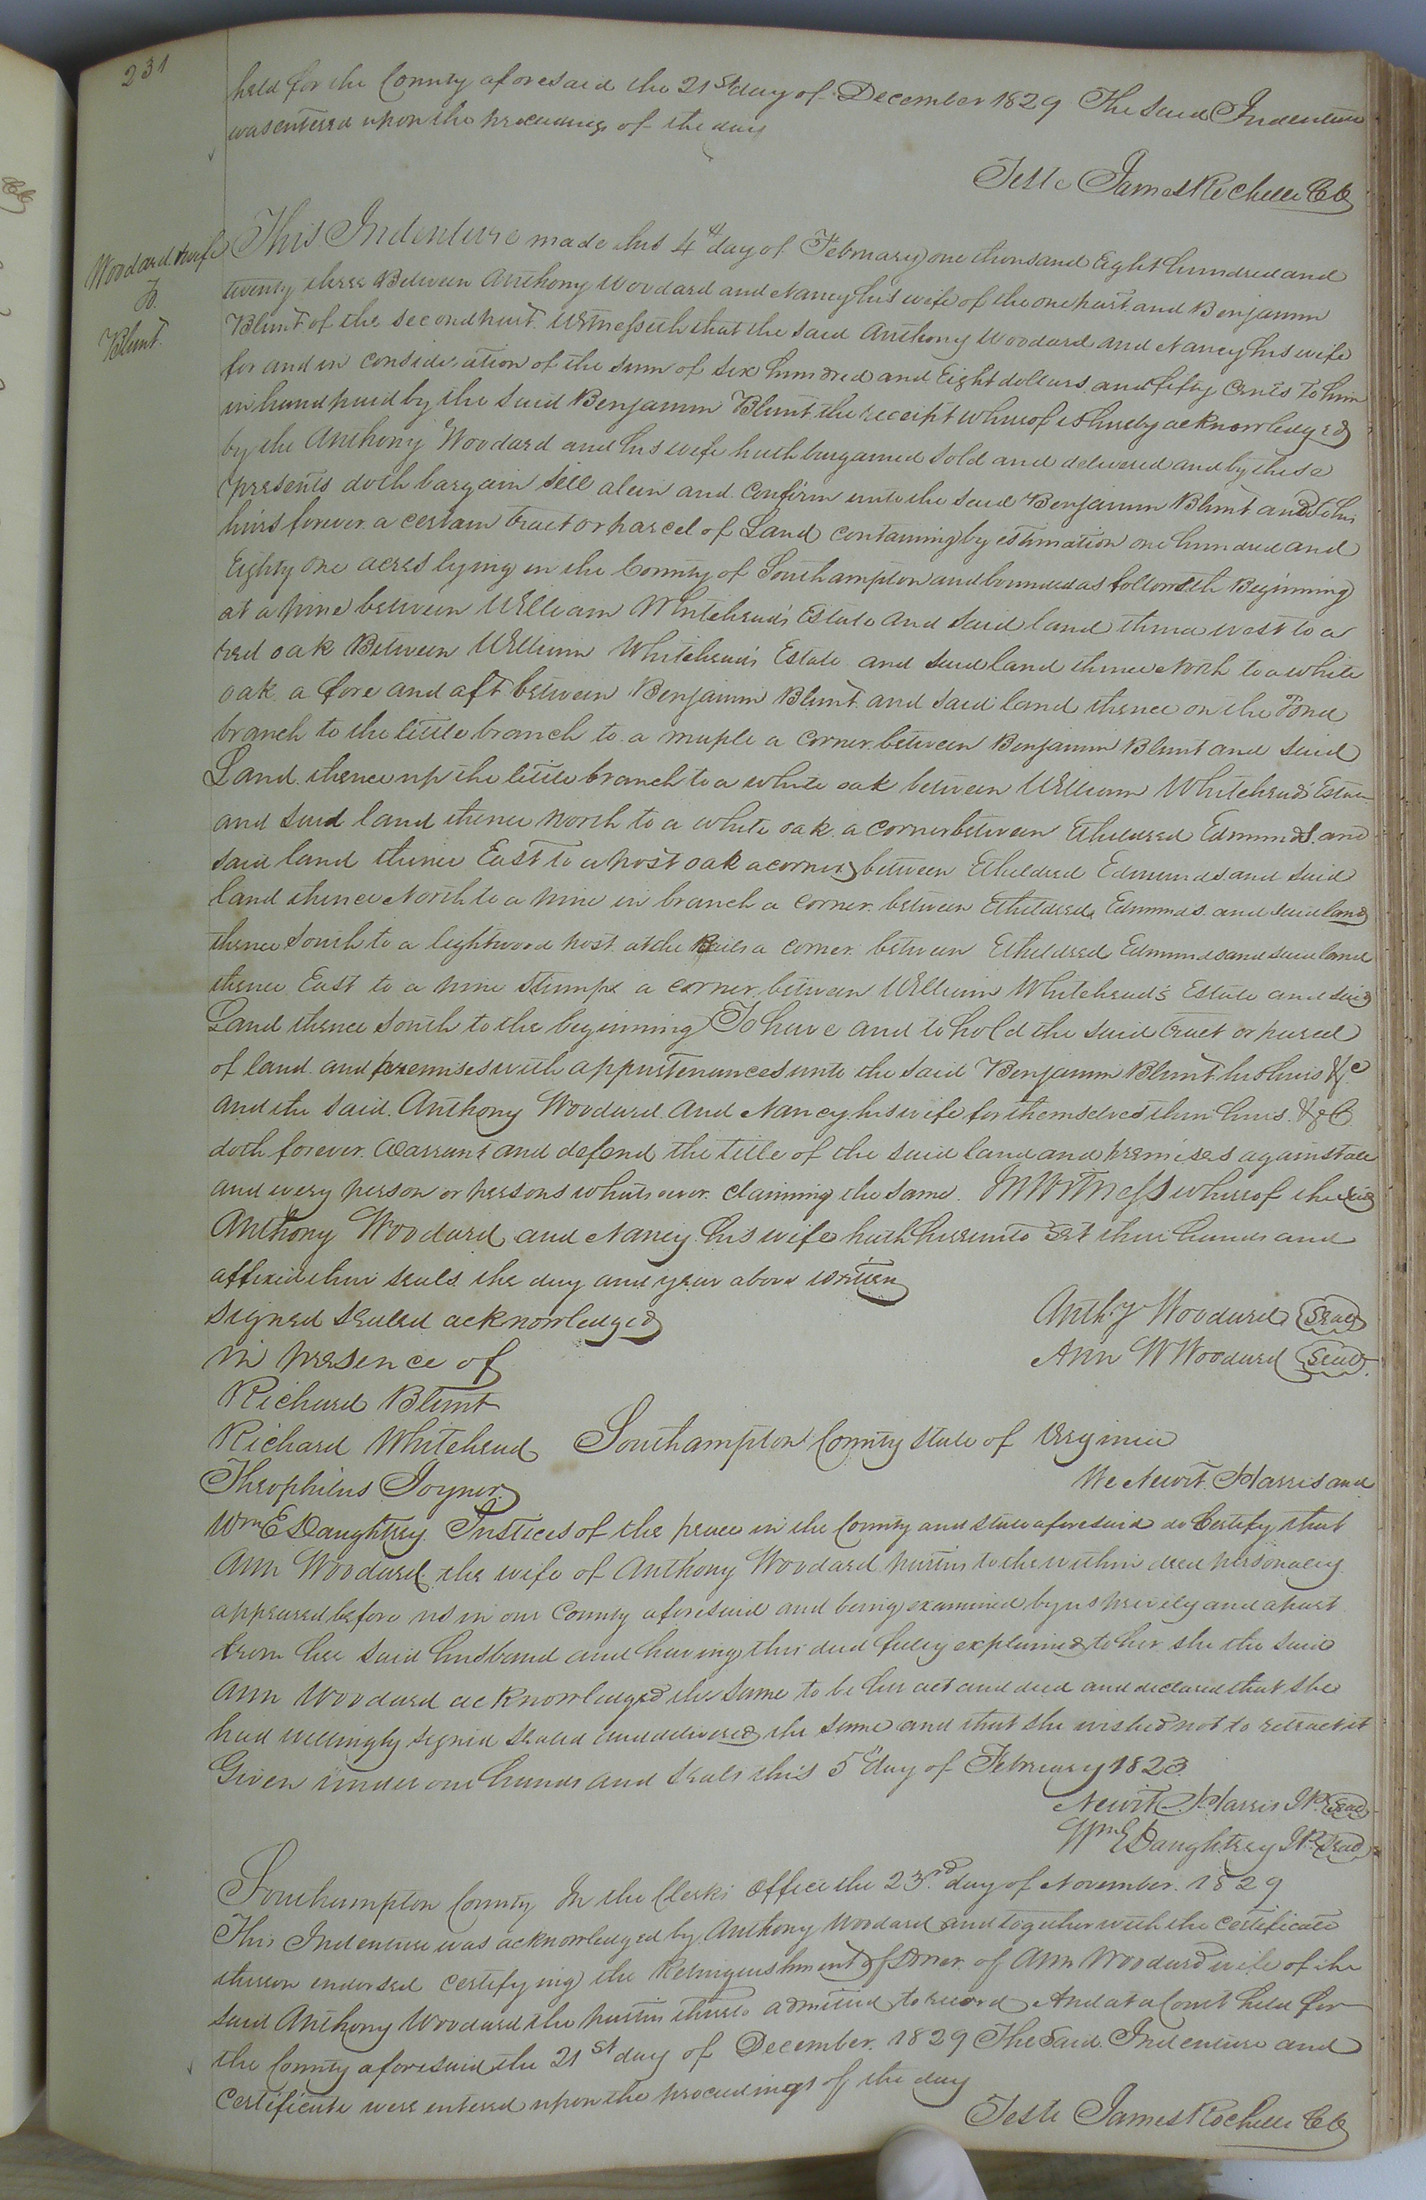 231
held for the County aforesaid the 21st day of December 1829 The said Indenture
was entered upon the proceedings of the day
Teste James Rochelle CC
Woodard & wife
To
Blunt
This Indenture made this 4th day of February one thousand Eight hundred and
twenty three Between Anthony Woodard and Nancy his wife of the one part and Benjamin
Blunt of the second part Witnesseth that the said Anthony Woodard and Nancy his wife
for and in consideration of the sum of six hundred and Eight dollars and fifty Cents To him
in hand paid by the said Benjamin Blunt the receipt whereof is hereby acknowledged
by the Anthony Woodard and his wife hath bargained sold and delivered and by these
presents doth bargain sell alien and confirm unto the said Benjamin Blunt and to his
heirs forever a certain tract or parcel of Land containing by estimation one hundred and
Eighty one acres lying in the County of Southampton and bounded as followeth Beginning
at a pine between William Whitehead's Estate and said land thence west to a
red oak Between William Whitehead's Estate and said land thence North to a white
oak a fore and aft between Benjamin Blunt and said land thence on the Pond
branch to the little branch to a maple a corner between Benjamin Blunt and said
Land thence up the little branch to a white oak between William Whitehead's Estate
and said land thence north to a white oak a corner between Etheldred Edmunds and
said land thence East to a post oak a corner between Etheldred Edmunds and said
land thence North to a pine in branch a corner between Etheldred Edmunds and said land
thence South to a lightwood post at the Rails a corner between Etheldred Edmunds and said land
thence East to a pine Stump a corner between William Whitehead's Estate and said
Land thence South to the beginning To have and to hold the said tract or parcel
of land and premises with appurtenances unto the said Benjamin Blunt his heirs &c
and the said Anthony Woodard and Nancy his wife for themselves their heirs &c
doth forever warrant and defend the title of the said land and premises against all
and every person or persons whatsoever claiming the same. In Witness whereof the said
Anthony Woodard and Nancy his wife hath hereunto set their hands and
affixed their seals the day and year above written
signed sealed acknowledged
Anthy Woodard Seal
in presence of
Ann W Woodard Seal
Richard Blunt
Richard Whitehead Southampton County State of Virginia
Theophilus Joyner We Newit Harris and
Wm E Daughtrey Justices of the peace in the County and state aforesaid do Certify that
Ann Woodard the wife of Anthony Woodard parties to the within deed personally
appeared before us in our County aforesaid and being examined by us privily and apart
from her said husband and having this deed fully explained to her she the said
Ann Woodard acknowledged the same to be her act and deed and declared that she
had willingly signed sealed and delivered the same and that she wished not to retract it
Given under our hands and seals this 5th day of February 1823.
Newit Harris JP Seal
Wm E Daughtrey JP Seal
Southampton County In the Clerks office the 23rd day of November 1829
This Indenture was acknowledged by Anthony Woodard and together with the certificate
thereon endorsed certifying the Relinquishment of Dower of Ann Woodard wife of the
said Anthony Woodard the parties thereto admitted to record And at a Court held for
the County aforesaid the 21st day of December 1829 The Said Indenture and
Certificate were entered upon the proceedings of the day
Teste James Rochelle CC